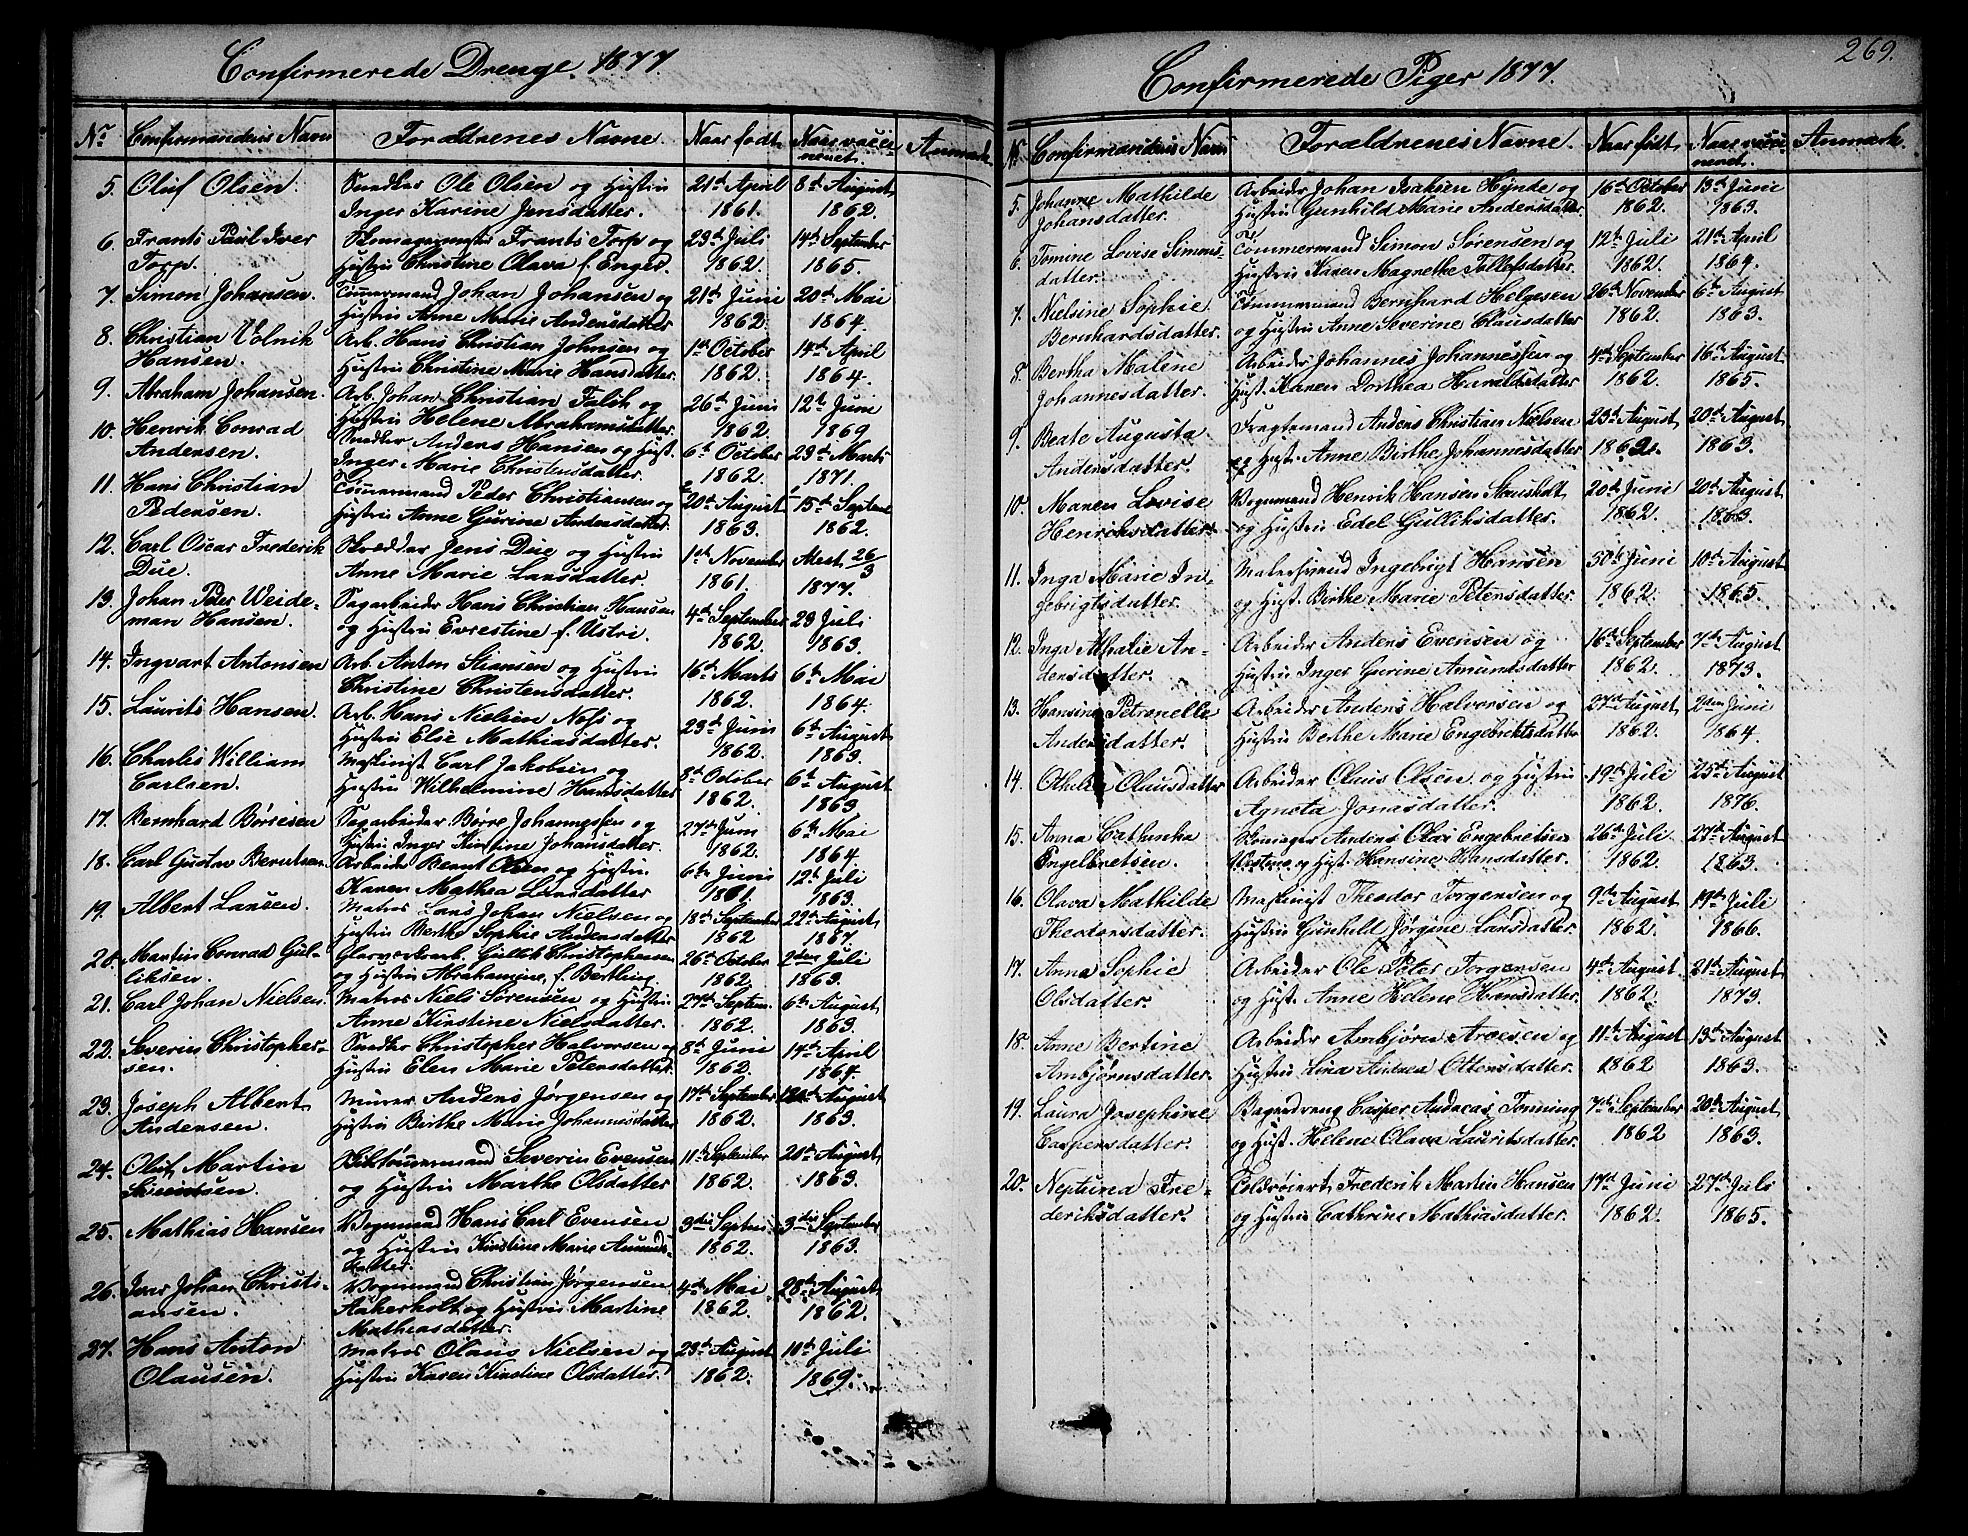 Confirmerede Drenge. 1877.
No Confirmandens Navn Forældrenes Navne. Naar født Naar vacci- Anmærk.
neret.
5. Oluf Olsen. Snedker Ole Olsen og Hustru 21de April 8de August
Inger Karine Jensdatter. 1861. 1862.
6. Frants Paul Iver Skomagermester Frants Torp og 29de Juli 14de September
Torp. Hustru Christine Olava f. Enger. 1862. 1865.
7. Simon Johansen. Tømmermand Johan Johansen og 21de Juni 20de Mai
Hustru Anne Marie Andersdatter 1862. 1864.
8. Christian Volnik Arb. Hans Christian Johnsen og 1ste October 14de April
Hansen. Hustru Christine Marie Hansdatter. 1862. 1864.
9. Abraham Johansen. Arb. Johan Christian Falck og 26de Juni 12te Juni
Hustru Helene Abrahamsdatter. 1862. 1869
10. Henrik Conrad Snedker Anders Hansen og Hust. 6te October 29de Marts
Andersen. Inger Marie Christensdatter. 1862. 1871.
11. Hans Christian Tømmermand Peder Christiansen og 20de August 15de Septem
Pedersen. Hustru Anne Gurine Andersdatter. 1863. 1862.
12. Carl Oscar Frederik Skrædder Jens Due og Hustru 1ste November Atest 26/3
Due. Anne Marie Larsdatter. 1861. 1877.
13. Johan Peter Weide- Sagarbeider Hans Christian Hansen 4de September 29 Juli
man Hansen. og Hustru Evrestine f. Ustri. 1862. 1863.
14. Ingvart Antonsen Arb. Anton Stiansen og Hustru 16de Marts 6te Mai
Christine Christensdatter. 1862. 1864.
15. Laurits Hansen. Arb. Hans Nielsen Næss og 23de Juni 6te August
Hustru Else Mathiasdatter. 1862. 1863.
16. Charles William Maskinist Carl Jakobsen og 8de October 6te August
Carlsen. Hustru Wilhelmine Hansdatter 1862. 1863.
17. Bernhard Børresen Sagarbeider Børre Johannesen og 27de Juni 6te Mai
Hustru Inger Kirstine Johansdatter. 1862. 1864.
18. Carl Gustav Berntsen Arbeider Bernt Olsen og Hustru 6te Juni 12te Juli
Karen Mathea Larsdatter 1861. 1863.
19. Albert Larsen. Matros Lars Johan Nielsen og 18de September 22de August
Hustru Berthe Sophie Andersdatter 1862 1867.
20. Martin Conrad Gul- Glasværksarb. Gullik Christophersen 26de October 2den Juli
liksen. og Hustru Abrahamine, f. Bertling 1862 1863.
21. Carl Johan Nielsen. Matros Niels Sørensen og Hustru 27de Septem. 6te August
Anne Kirstine Nielsdatter. 1862. 1863.
22. Severin Christopher- Snedker Christopher Halvorsen og 8de Juni 14de April
sen. Hustru Elen Marie Petersdatter. 1862. 1864.
23. Joseph Albert Murer Anders Jørgensen og 17de September 20de August
Andersen. Hustru Birthe Marie Johannesdatter 1862. 1863.
24. Oluf Martin Skibtømmermand Severin Evensen 11te September 20de August
Severinsen. og Hustru Marthe Olsdatter 1862. 1863.
25. Mathias Hansen Vognmand Hans Carl Evensen 3die Septem 3die September
og Hustru Kirstine Marie Amunds- 1862. 1863.
datter.
26. Iver Johan Christi- Vognmand Christian Jørgensen 4de Mai 28de August
ansen. Aakerholt og Hustru Martine 1862. 1862.
Mathiasdatter.
27. Hans Anton Matros Olaus Nielsen og 23de August 10de Juli
Olausen. Hustru Karen Kirstine Olsdatter. 1862. 1869.
269.
Confirmerede Piger 1877.
No Confirmandens Navn Forældrenes Navne. Naar født Naar vacci- Anmærk.
neret.
5. Johanne Mathilde Arbeider Johan Isaksen Hynde og 16de October 13de Juni
Johansdatter. Hustru Gunhild Marie Andersdatter. 1862. 1863.
6. Tomine Lovise Simons- Tømmermand Simon Sørensen og 12te Juli 21de April
datter. Hustru Karen Magrethe Tollefsdatter. 1862. 1864.
7. Nielsine Sophie Tømmermand Bernhard Helgesen 26de November 6te August
Bernhardsdatter. og Hustru Anne Severine Clausdatter 1862. 1863.
8. Bertha Maline Arbeider Johannes Johannessen og 4de September 16de August
Johannesdatter. Hust. Karen Dorthea Haraldsdatter 1862. 1865.
9. Beate Augusta Fragtemand Anders Christian Nielsen 23de August 20de August
Andersdatter. og Hust. Anne Birthe Johannesdatter 1862. 1863.
10. Maren Lovise Vognmand Henrik Hansen 20de Juni 20de August
Henriksdatter. og Hustru Edel Gulliksdatter. 1862. 1863.
11. Inga Marie In- Malersvend Ingebrigt Hansen 30de Juni 10de August
gebrigtsdatter. og Hust. Birthe Marie Petersdatter. 1862. 1865.
12. Inga Athalie An- Arbeider Anders Evensen og 16de September 7de August
dersdatter. Hustru Inger Gurine Amundsdatter 1862. 1873.
13. Hansine Petronelle Arbeider Anders Halvorsen og 27de August 2den Juni
Andersdatter. Hustru Berthe Marie Engebrektsdatter 1862. 1864.
14. Othelia Olausdatter Arbeider Olaus Olsen og Hustru 19de Juli 25de August
Agneta Jonasdatter. 1862. 1876.
15. Anna Cathinka Skomager Anders Olai Engebretsen 26de Juli 27de August
Engelbretsen. og Hust. Hansine Hansdatter. 1862. 1863.
16. Olava Mathilde Maskinist Theodor Torgersen og 9de August 19de Juli
Theodorsdatter. Hustru Gunhild Jørgine Larsdatter. 1862. 1866.
17. Anna Sophie Arbeider Ole Peter Torgersen 4de August 21de August
Olsdatter. og Hust. Anne Helene Hansdatter. 1862. 1873.
18. Anne Bertine Arbeider Ambjørn Aroesen og 11te August 13de August
Ambjørnsdatter. Hustru Lina Andrea Ottersdatter. 1862 1863.
19. Laura Josephine Bagerdreng Casper Andreas Tonning 7de September 20de August
Caspersdatter. og Hust. Helene Olava Lauritsdatter. 1862 1863.
20. Neptunea Fre- Toldroiert Frederik Martin Hansen 17de Juni 27de Juli
deriksdatter. og Hustru Cathrine Mathiasdatter. 1862. 1865.